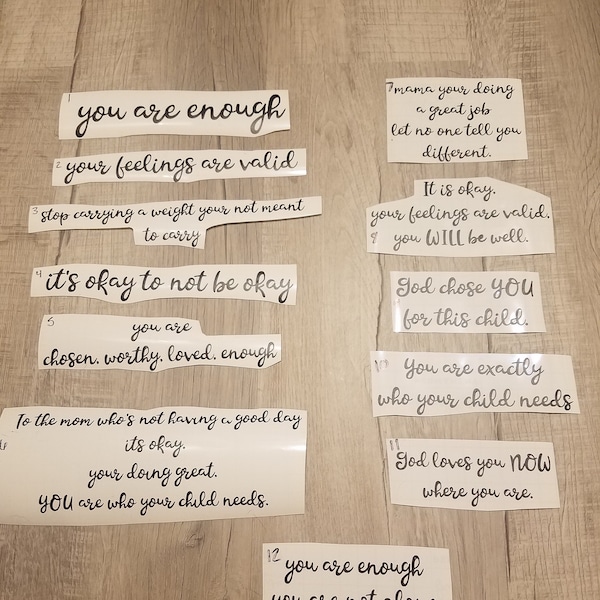 1 you are enough
2 your feelings are valid
3 stop carrying a weight your not meant
to carry
4 it's okay to not be okay
5 you are
chosen. worthy. loved. enough
To the mom who's not having a good day
its okay.
your doing great.
YOU are who your child needs.
7 mama your doing
a great job
let no one tell you
different.
It is okay.
your feelings are valid.
8 you WILL be well.
God chose YOU
for this child.
10 You are exactly
who your child needs
11 God loves you NOW
where you are.
12 you are enough
you are not alone